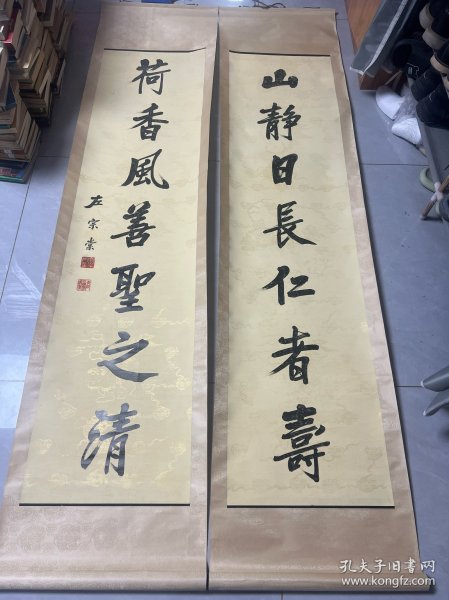 山靜日長仁者壽
荷香風善聖之清
左宗棠
孔夫子旧书网
www.kongfz.com